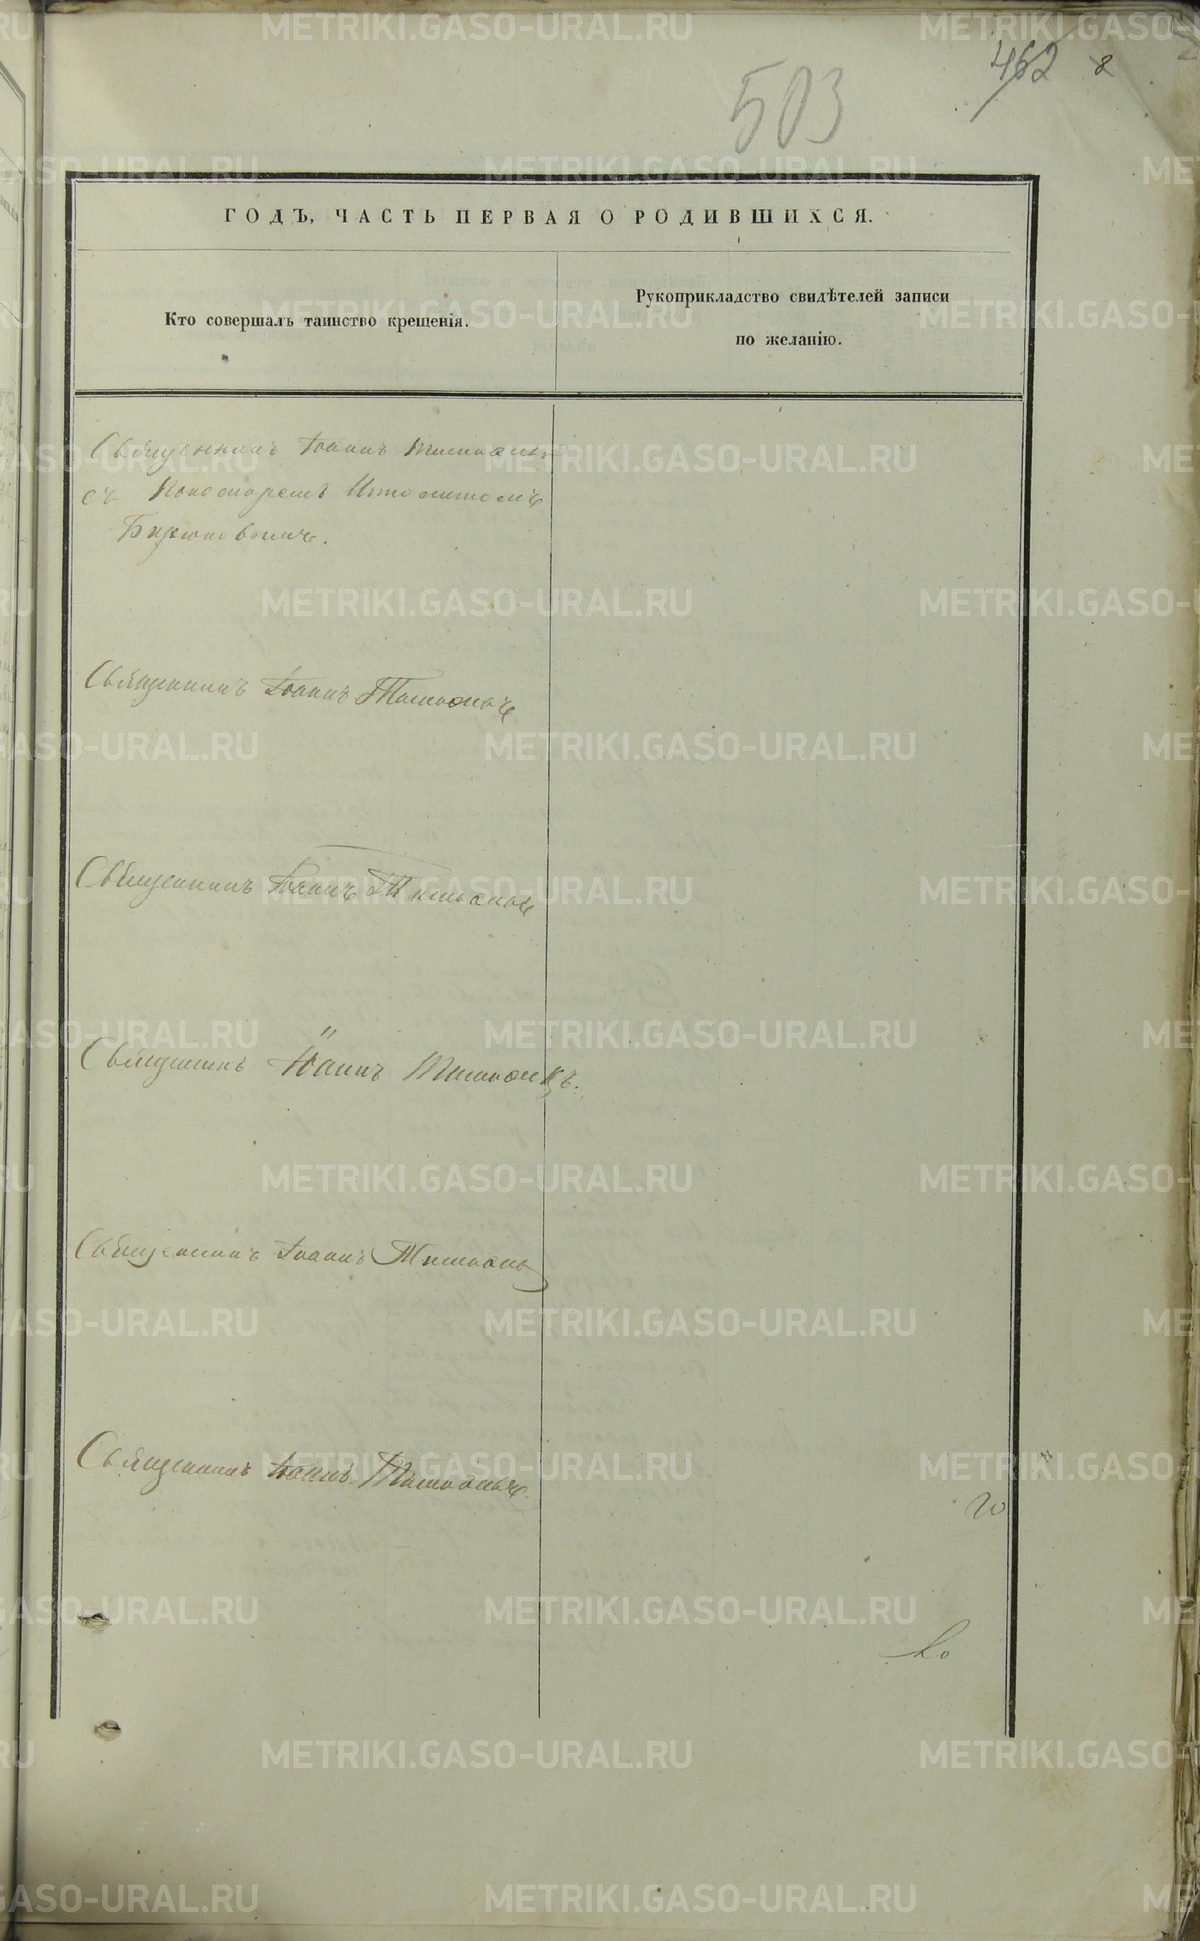 462 8
503
ГОДЪ, ЧАСТЬ ПЕРВАЯ О РОДИВШИХСЯ.
Кто совершалъ таинство крещенія.
Рукоприкладство свидѣтелей записи
по желанію.
Священникъ Іоаннъ
съ Пономаремъ Ипполитомъ
Бирюковымъ.
Священникъ Іоаннъ
Священникъ Іоаннъ
Священникъ Іоаннъ
Священникъ Іоаннъ
Священникъ Іоаннъ
METRIKI.GASO-URAL.RU